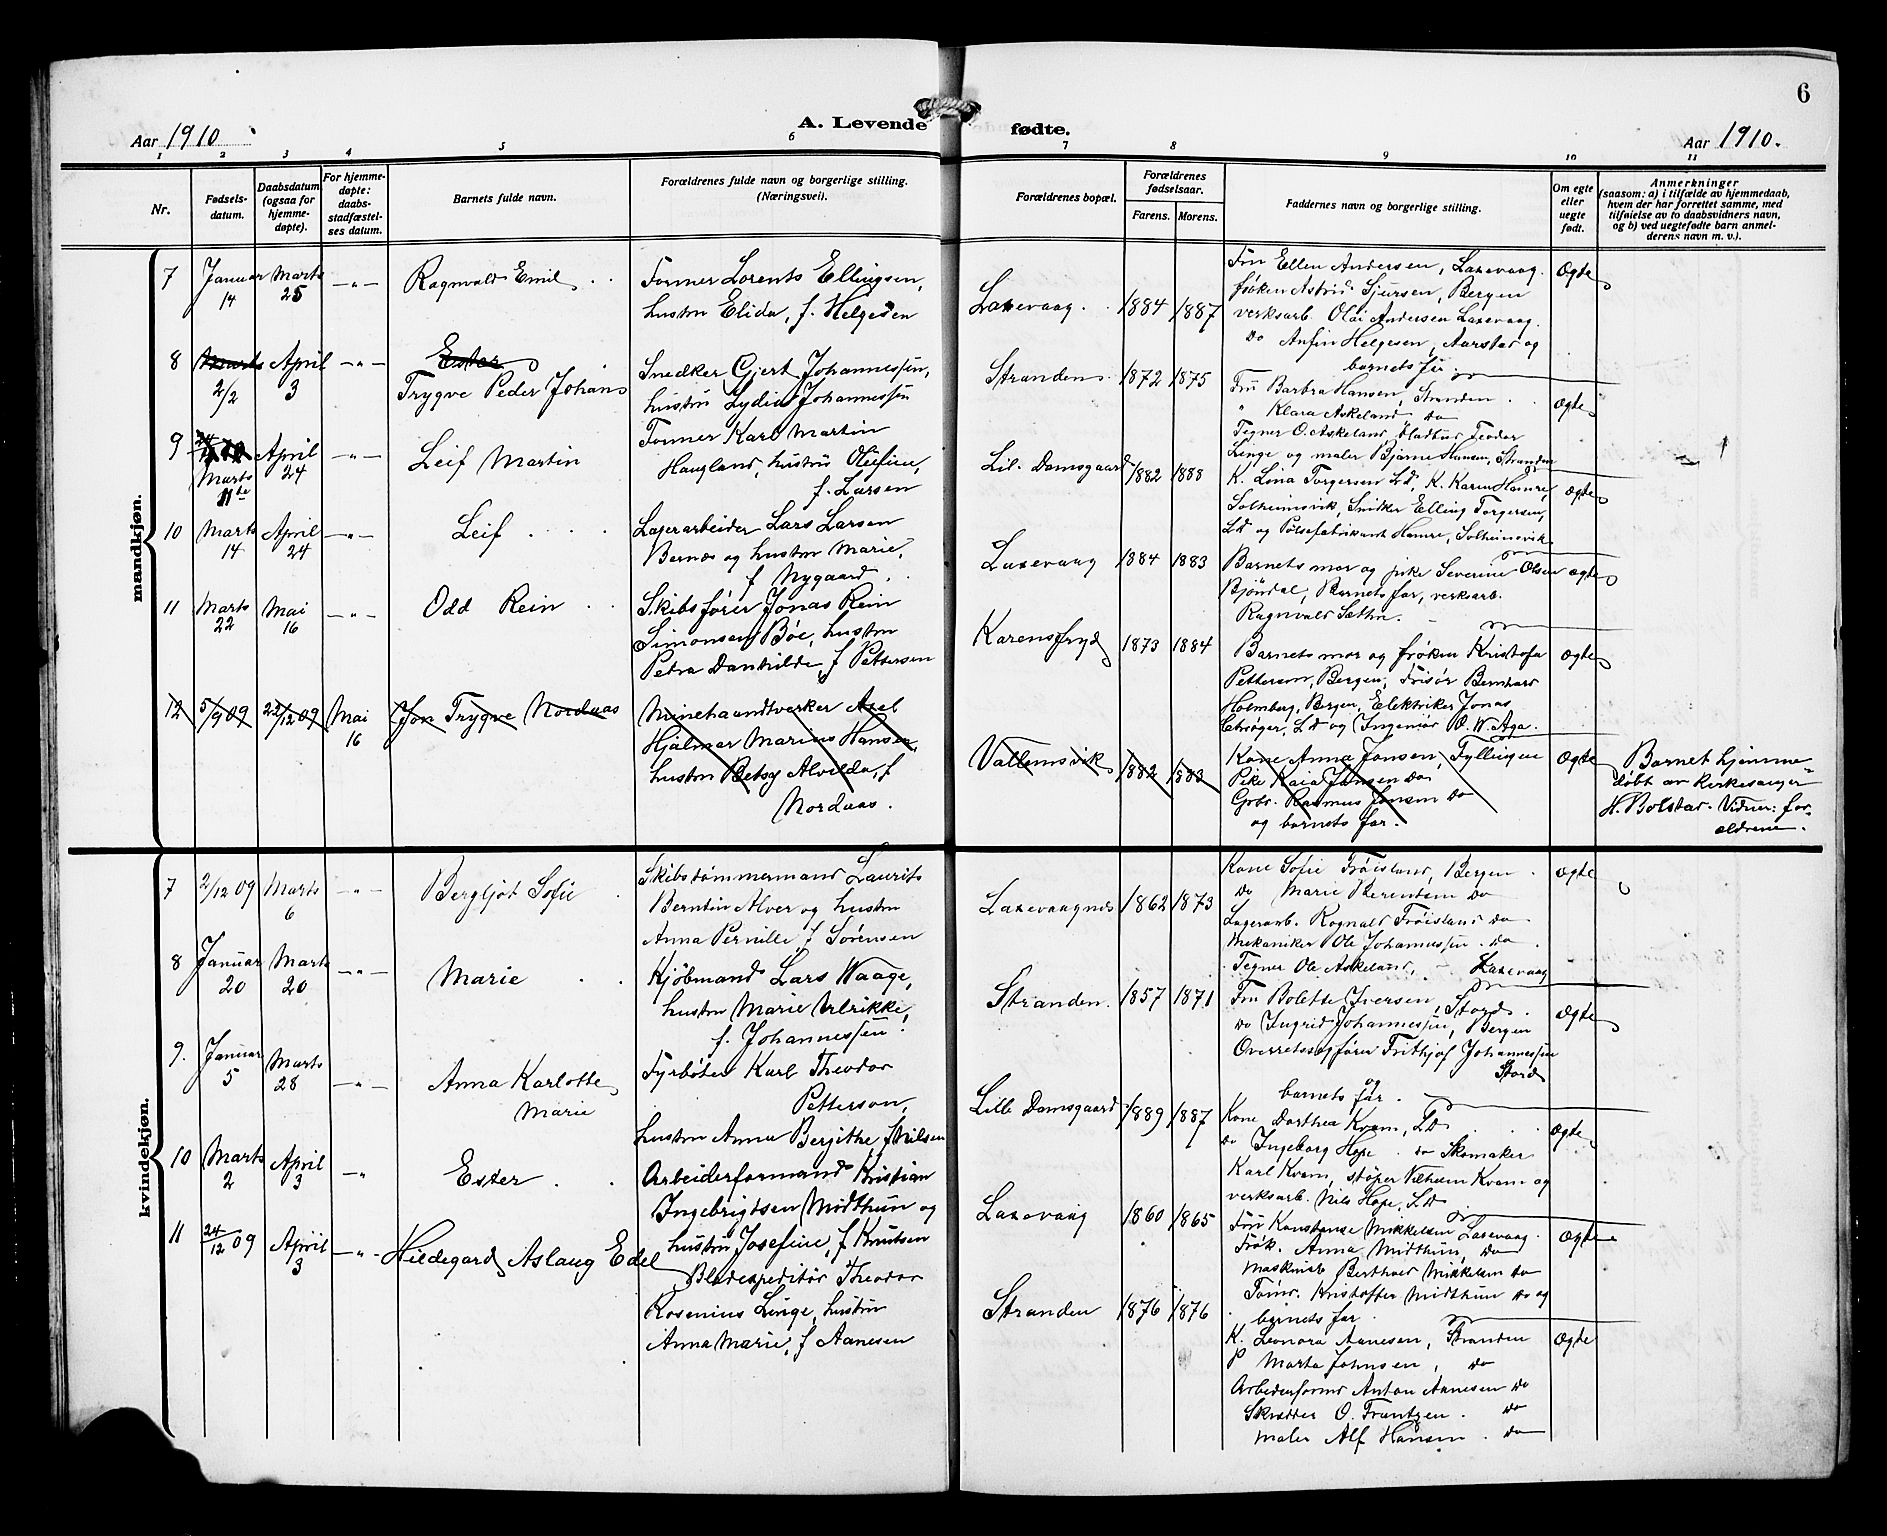 6
Aar 1910
A. Levende fødte.
Aar 1910.
1 2 3 4 5 6 7 8 9 10 11
Nr.
Fødsels-
datum.
Daabsdatum
(ogsaa for
hjemme-
døpte).
For hjemme-
døpte:
daabs-
stadfæstel-
ses datum.
Barnets fulde navn.
Forældrenes fulde navn og borgerlige stilling.
(Næringsvei).
Forældrenes bopæl.
Forældrenes
fødselsaar.
Farens. Morens.
Faddernes navn og borgerlige stilling.
Om egte
eller
uegte
født.
Anmerkninger
(saasom: a) i tilfælde av hjemmedaab,
hvem der har forrettet samme, med
tilføielse av to daabsvidners navn,
og b) ved uegtefødte barn anmel-
derens navn m. v.).
mandkjøn.
7 Januar 14 Marts 25 -„- Ragnvald Emil
Former Lorents Ellingsen,
hustru Elida, f. Helgesen
Laxevaag. 1884 1887
Fru Ellen Andersen, Laxevaag.
frøken Astrid Sjursen, Bergen
verksarb. Olai Andersen Laxevaag.
Do Anfin Helgesen, Aarstad og
barnets far.
Ægte
8 Marts 2/2 April 3 -„- Ester
Trygve Peder Johan
Snedker Gjert Johannessen,
hustru Lydia Johannessen
Stranden 1872 1875
Fru Barbra Hansen, Stranden
„ Klara Askeland Do
Tegner O. Askeland, Teodor
Linge og maler Bjarne Hansen, Stranden
Ægte
9 Marts 11te April 24 -„- Leif Martin
Former Karl Martin
Haugland, hustru Olefine,
f. Larsen
Lil. Damsgaard 1882 1888
K. Lina Torgersen Ld, K. Karen Hamre,
Solheimsvik, Snitker Elling Torgersen,
Ld og Pølsefabrikant Hamre, Solheimsvik
Ægte
10 Marts 14 April 24 -„- Leif
Lagerarbeider Lars Larsen
Bernæs og hustru Marie,
f Nygaard
Laxevaag 1884 1883
Barnets mor og pike Severine Olsen
Bjöndal, Barnets far, verksarb.
Ragnvald Sæthre.
Ægte
11 Marts 22 Mai 16 -„- Odd Rein
Skibsfører Jonas Rein
Simonsen Bøe, hustru
Petra Dankilde, f Pettersen
Karensfryd 1873 1884
Barnets mor og frøken Kristofa
Petterson, Bergen, Frisør Bernhard
Holmberg, Bergen, Elektriker Jonas
Ld og Ingeniør O. W. Aga.
Ægte
12 5/9 09 22/12 09 Mai 16 Jon Trygve Nordaas
Minehaandtverker Axel
Hjalmar Marius Hansen,
hustru Betsy Alvilda, f
Nordaas.
Vallemsvik 1882 1883
Kone Anna Jansen, Fyllingen
Pike Kaia Jansen Do
Grbr. Rasmus Jansen Do
og barnets far.
Ægte
Barnet hjemme-
døbt av kirkesanger
H. Bolstad. Vidner: for-
ældrene.
kvindekjøn.
7 2/12 09 Marts 6 -„- Bergljot Sofie
Skibstømmermand Laurits
Berntin Alver og hustru
Anna Pernille f Sørensen
Laxevaagnes 1862 1873
Kone Sofie Trøisland, Bergen
Do Marie Berentsen Do
Lagerarb. Rognald Trøisland Do
Mekaniker Ole Johannessen Do
Tegner Ole Askeland, Laxevaag
Ægte
8 Januar 20 Marts 20 -„- Marie
Kjøbmand Lars Waage,
hustru Marie Ulrikke,
f. Johannessen.
Stranden. 1857 1871
Fru Bolette Iversen, Stord.
Do Ingrid Johannessen, Bergen
Overretssagfører Frithjof Johannessen
Stord
og
barnets far.
Ægte
9. Januar 5 Marts 28 -„- Anna Karlotte
Marie
Fyrbøter Karl Theodor
Petterson,
hustru Anna Bergithe f Nilsen
Lille Damsgaard 1889 1887
Kone Dorthea Kvam, Ld
Do Ingeborg Hope Do Skomaker
Karl Kvam, støper Vilhelm Kvam og
verksarb. Nils Hope, Ld
Ægte
10 Marts 2 April 3 -„ Ester
Arbeiderformand Kristian
Ingebrigtsen Midthun og
hustru Josefine, f Knutsen
Laxevaag 1860 1865
Fru Konstanse Mikkelsen Laxevaag.
Frøk. Anna Midthun, Do
Maskinist Berthold Mikkelsen Do
Tømr. Kristoffer Midthun Do og
barnets far.
Ægte
11 24/12 09 April 3 -„- Hildegard Aslaug Edel
Bladexpeditør Theodor
Rosenius Linge, hustru
Anna Marie, f Aanesen
Stranden 1876 1876
K. Leonora Aanesen, Stranden
P Marta Johnsen, Do
Arbeiderformd Anton Aanesen Do
Skrædder O. Frantzen. Do
Maler Alf Hansen. Do
Ægte